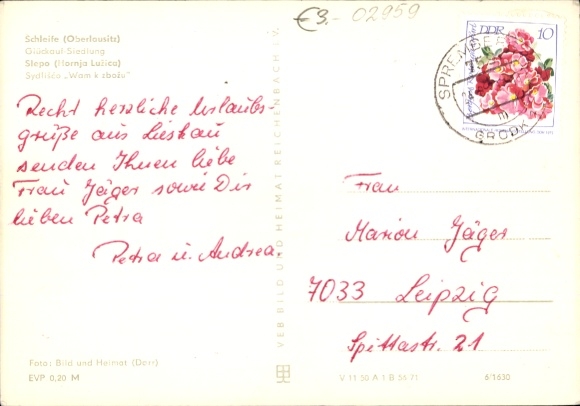 €3.- 02959
Schleife (Oberlausitz)
Glückauf-Siedlung
Slepo (Hornja Łužica)
Sydlišćo „Wam k zbožu"
Recht herzliche Urlaubs-
grüße aus Lieskau
senden Ihnen liebe
Frau Jäger sowie Dir
lieben Petra
Petra u. Andrea.
Foto: Bild und Heimat (Dorr)
EVP 0,20 M
VEB BILD UND HEIMAT REICHENBACH i. V.
DDR 10
SPREMBERG
GRODK
Frau
Marion Jäger
7033 Leipzig
Spittastr. 21
V 11 50 A 1 B 56 71
6/1630